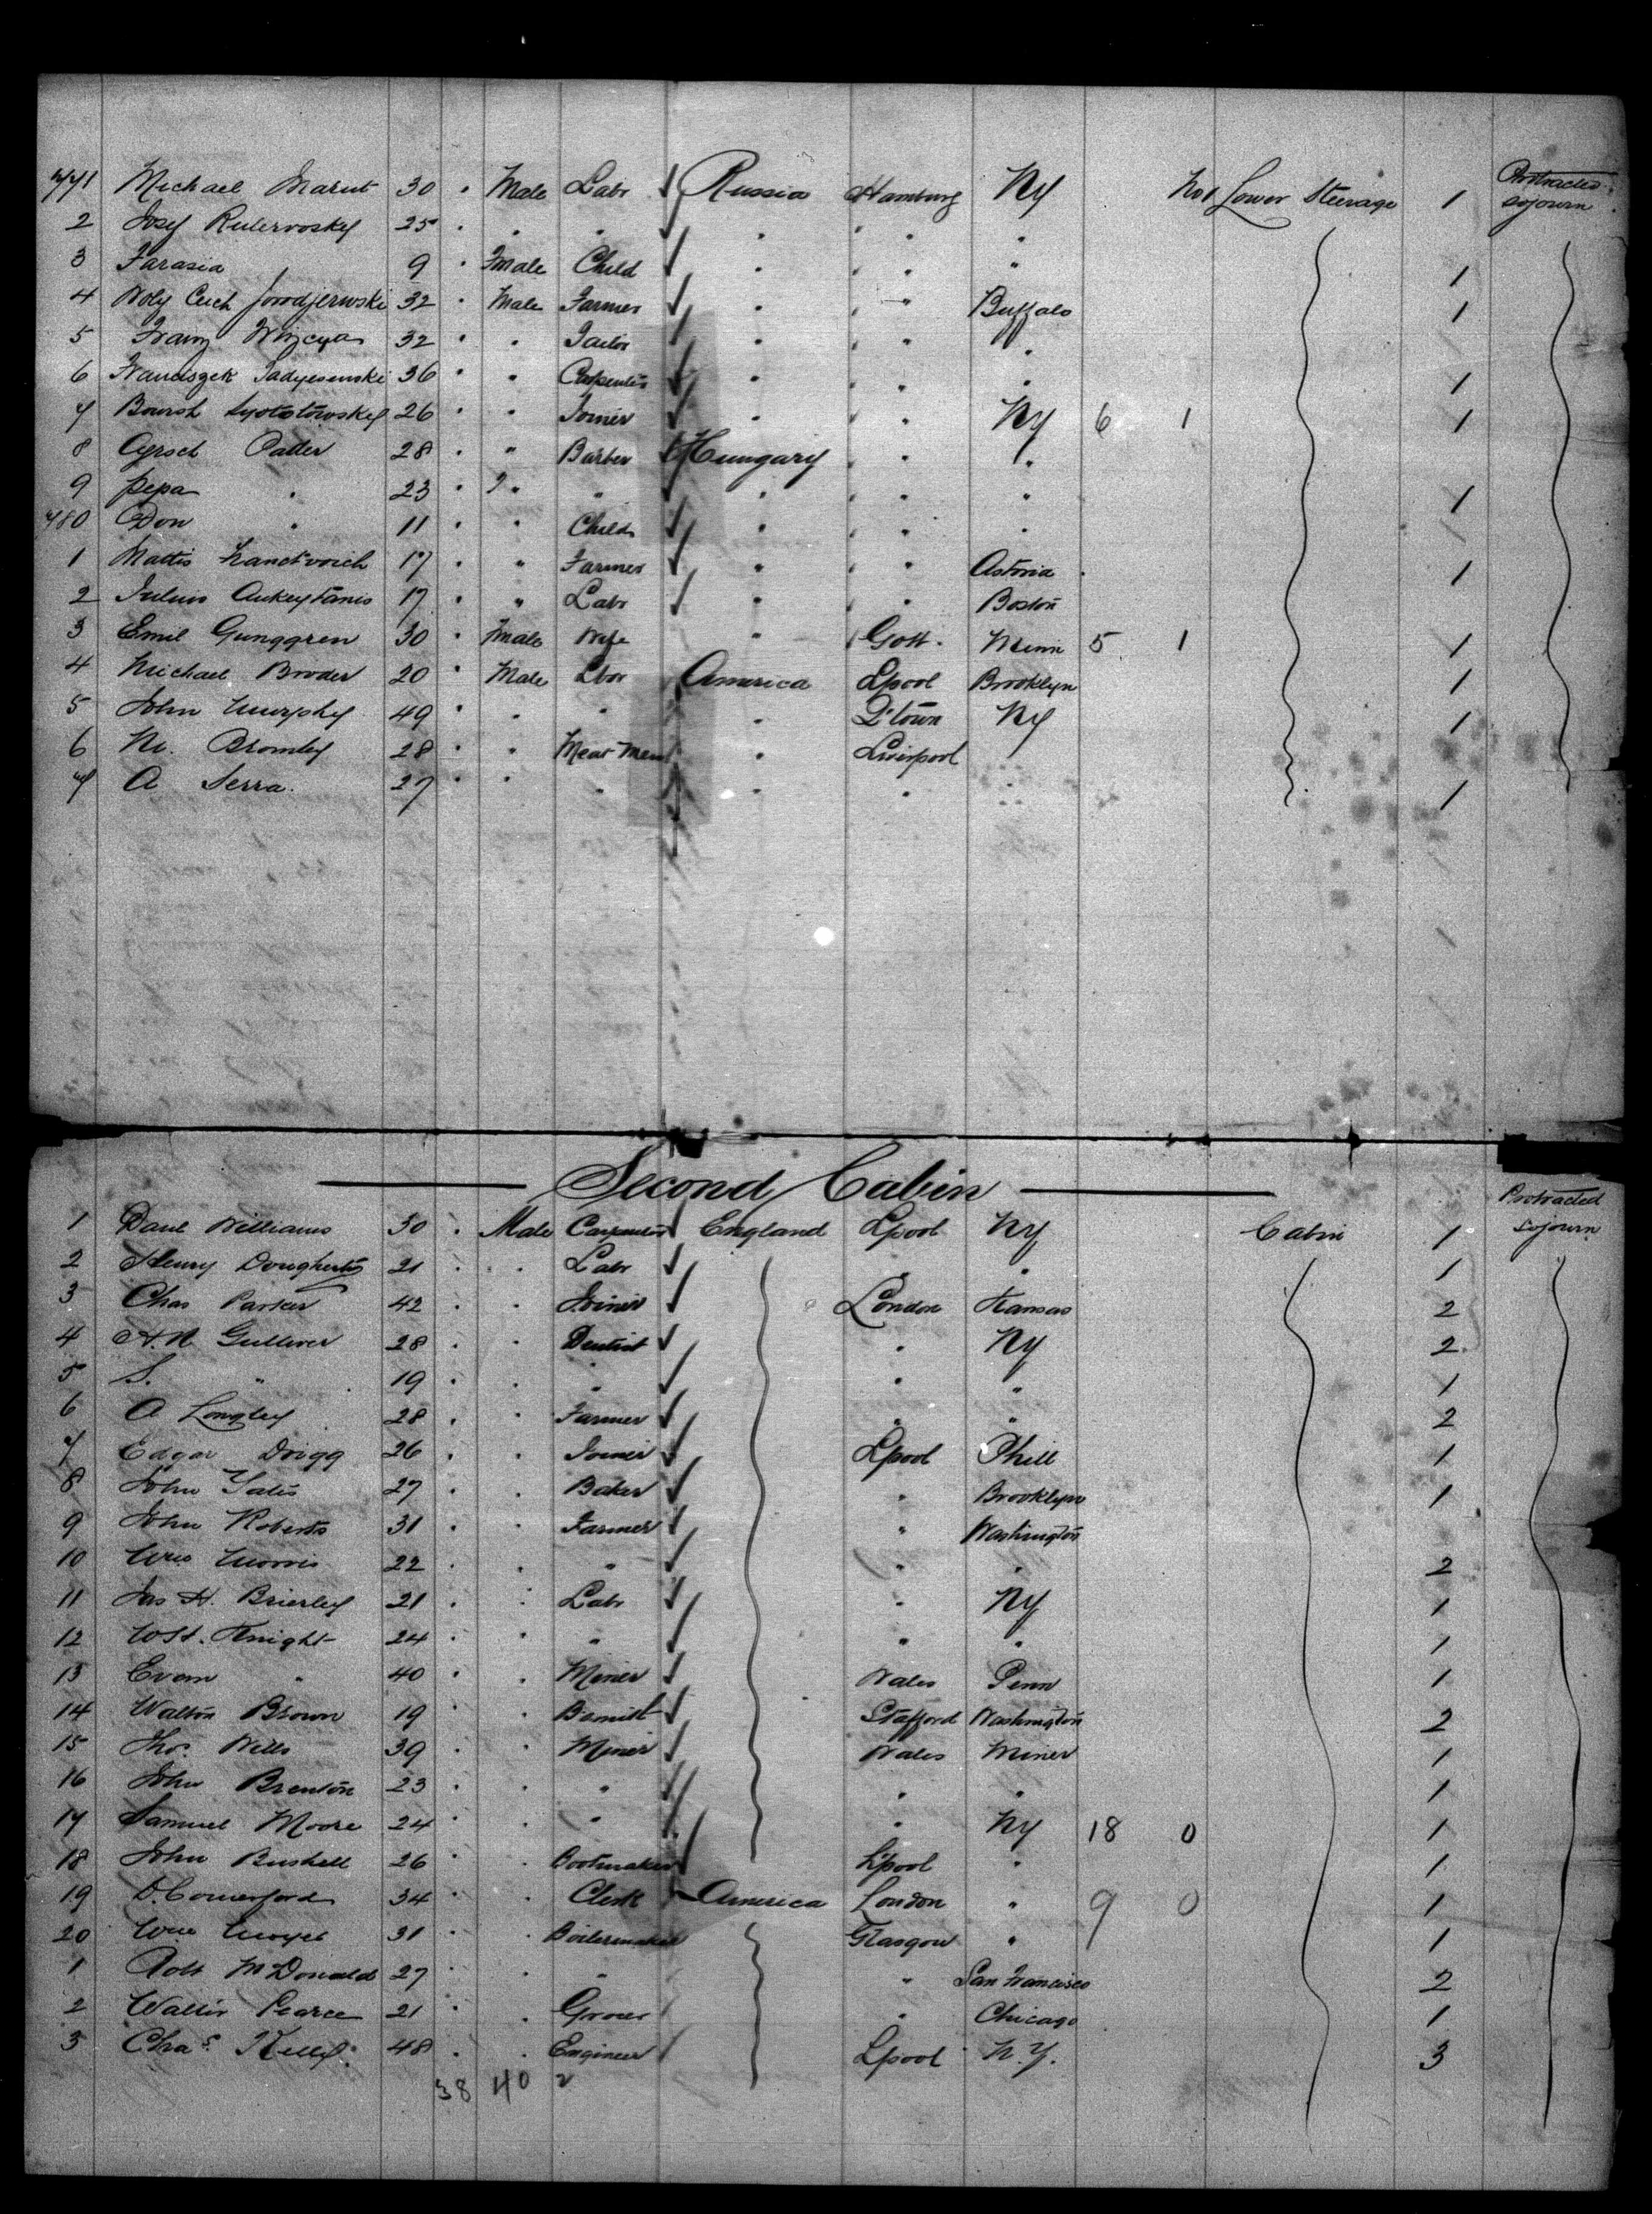 771 Michael Marut 30 " Male Labr Russia Hamburg NY No 1 Lower Steerage 1 Protracted sojourn
2 Josef 25 " " " " " " "
3 Farasia 9 " Fmale Child " " " " 1
4 32 " Male Farmer " " " Buffalo 1
5 Franz 32 " " Tailor " " " "
6 Franciszek 36 " " Carpenter " " " " 1
7 26 " " Joiner " " NY 6 1 1
8 28 " " Barber Hungary " " "
9 Pepa " 23 " " " " " " " 1
780 Don " 11 " " Child " " " "
1 Mattis 17 " " Farmer " " " Astoria 1
2 Julius 17 " " Labr " " Boston
3 Emil Gunggren 30 " Fmale Wife " Gott. Minn 5 1 1
4 Michael Broder 20 " Male Lbor America Lpool Brooklyn 1
5 John Murphy 49 " " " " Q'town NY 1
6 M. Bromley 28 " " Meat Man " Liverpool
7 A Serra. 27 " " " " " " 1
Second Cabin
1 Danl Williams 30 " Male Carpenter England Lpool NY Cabin 1 Protracted sojourn
2 Henry Dougherty 21 " " Labr " " 1
3 Chas Parker 42 " " Joiner London Kansas 2
4 A.N. Gulliver 28 " " Dentist " NY 2
5 S. " 19 " " " " " 1
6 A Longley 28 " " Farmer " " 2
7 Edgar Dorgg 26 " " Joiner Lpool Phill 1
8 John Yates 27 " " Baker " Brooklyn 1
9 John Roberts 31 " " Farmer " Washington
10 Wm Morris 22 " " " " " 2
11 Jas H. Brierley 21 " " Labr " NY 1
12 W H. Knight 24 " " " " " 1
13 Evan " 40 " " Miner Wales Penn 1
14 Walton Brown 19 " " Stafford Washington 2
15 Thos. Wills 39 " " Miner Wales Miner 1
16 John Brenton 23 " " " " " 1
17 Samuel Moore 24 " " " " NY 18 0 1
18 John Bushell 26 " " Bootmaker L'pool " 1
19 D. Comerford 34 " " Clerk America London " 9 0 1
20 Wm 31 " " Boilermaker Glasgow " 1
1 Robt McDonald 27 " " " " San Francisco 2
2 Walter Pearce 21 " " Grocer " Chicago 1
3 Chas. Kelly. 48 " " Engineer Lpool N.Y. 3
38 40 2